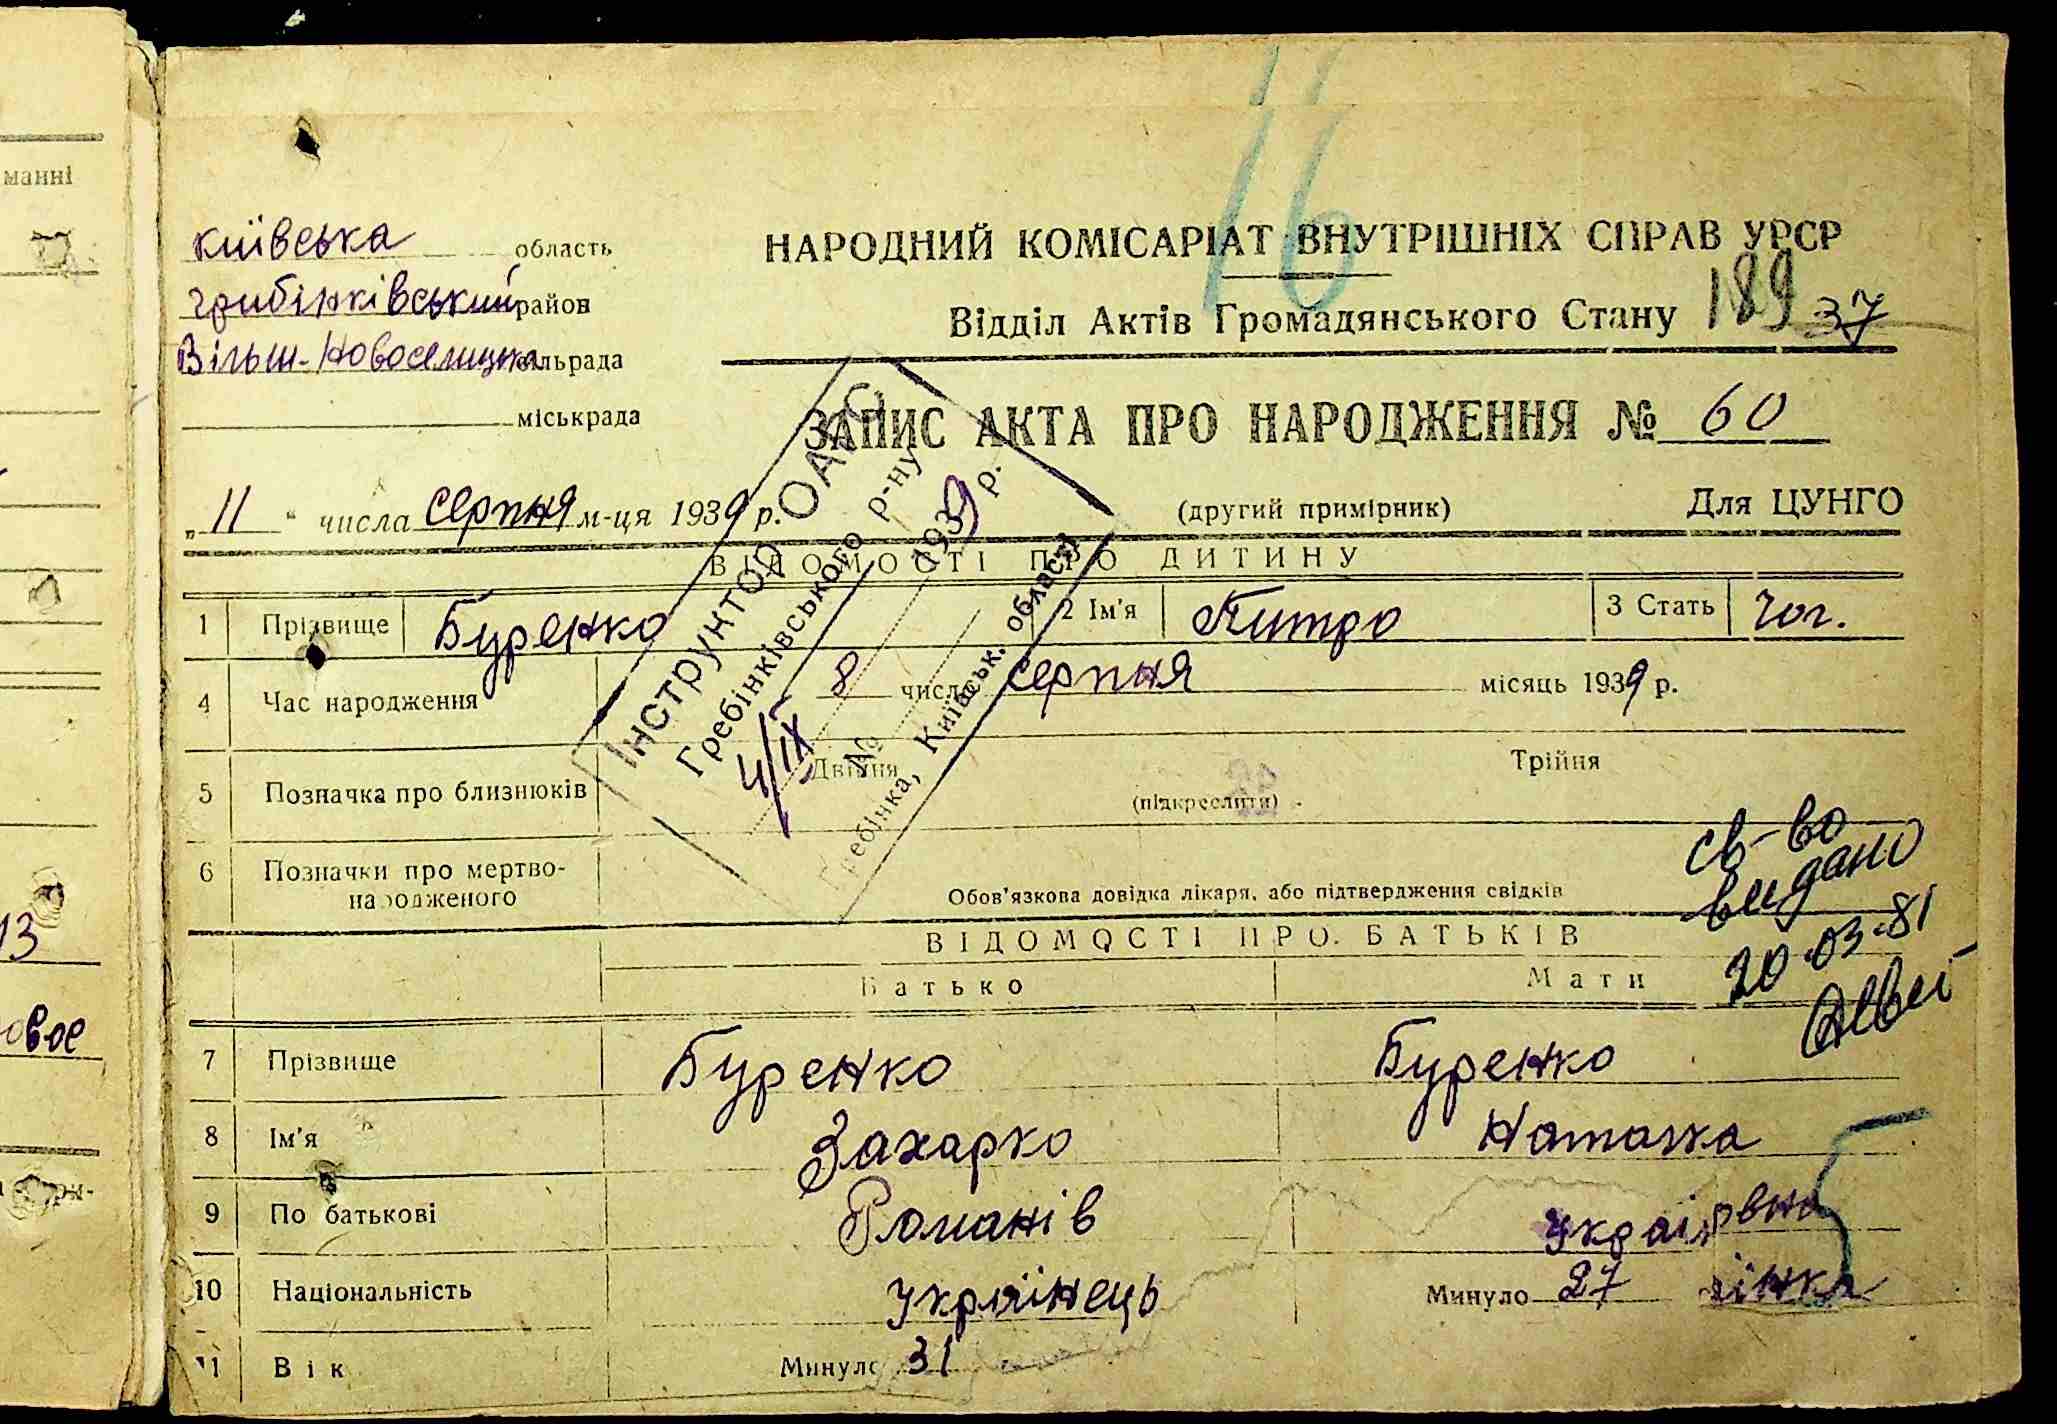 манні
13
овое
16
Київська область
Грибінківський район
Вільш-Новоселицька сільрада
міськрада
НАРОДНИЙ КОМІСАРІАТ ВНУТРІШНІХ СПРАВ УРСР
Відділ Актів Громадянського Стану 189 37
ЗАПИС АКТА ПРО НАРОДЖЕННЯ № 60
„11“ числа серпня м-ця 1939 р. (другий примірник) Для ЦУНГО
Інструктор ОАГС
Гребінківського р-ну
4/IX 1939 р.
№
Гребінка, Київськ. області
ВІДОМОСТІ ПРО ДИТИНУ
1 Прізвище Буренко 2 Ім'я Питро 3 Стать чог.
4 Час народження 8 числа серпня місяць 1939 р.
5 Позначка про близнюків Двійня (підкреслити) Трійня
6 Позначки про мертво-
народженого Обов'язкова довідка лікаря, або підтвердження свідків
св-во
видано
20.03.81
ВІДОМОСТІ ПРО БАТЬКІВ
Батько Мати
7 Прізвище Буренко Буренко
8 Ім'я Захарко Наталка
9 По батькові Романів
10 Національність українець Минуло 27 їнка
11 Вік Минуло 31